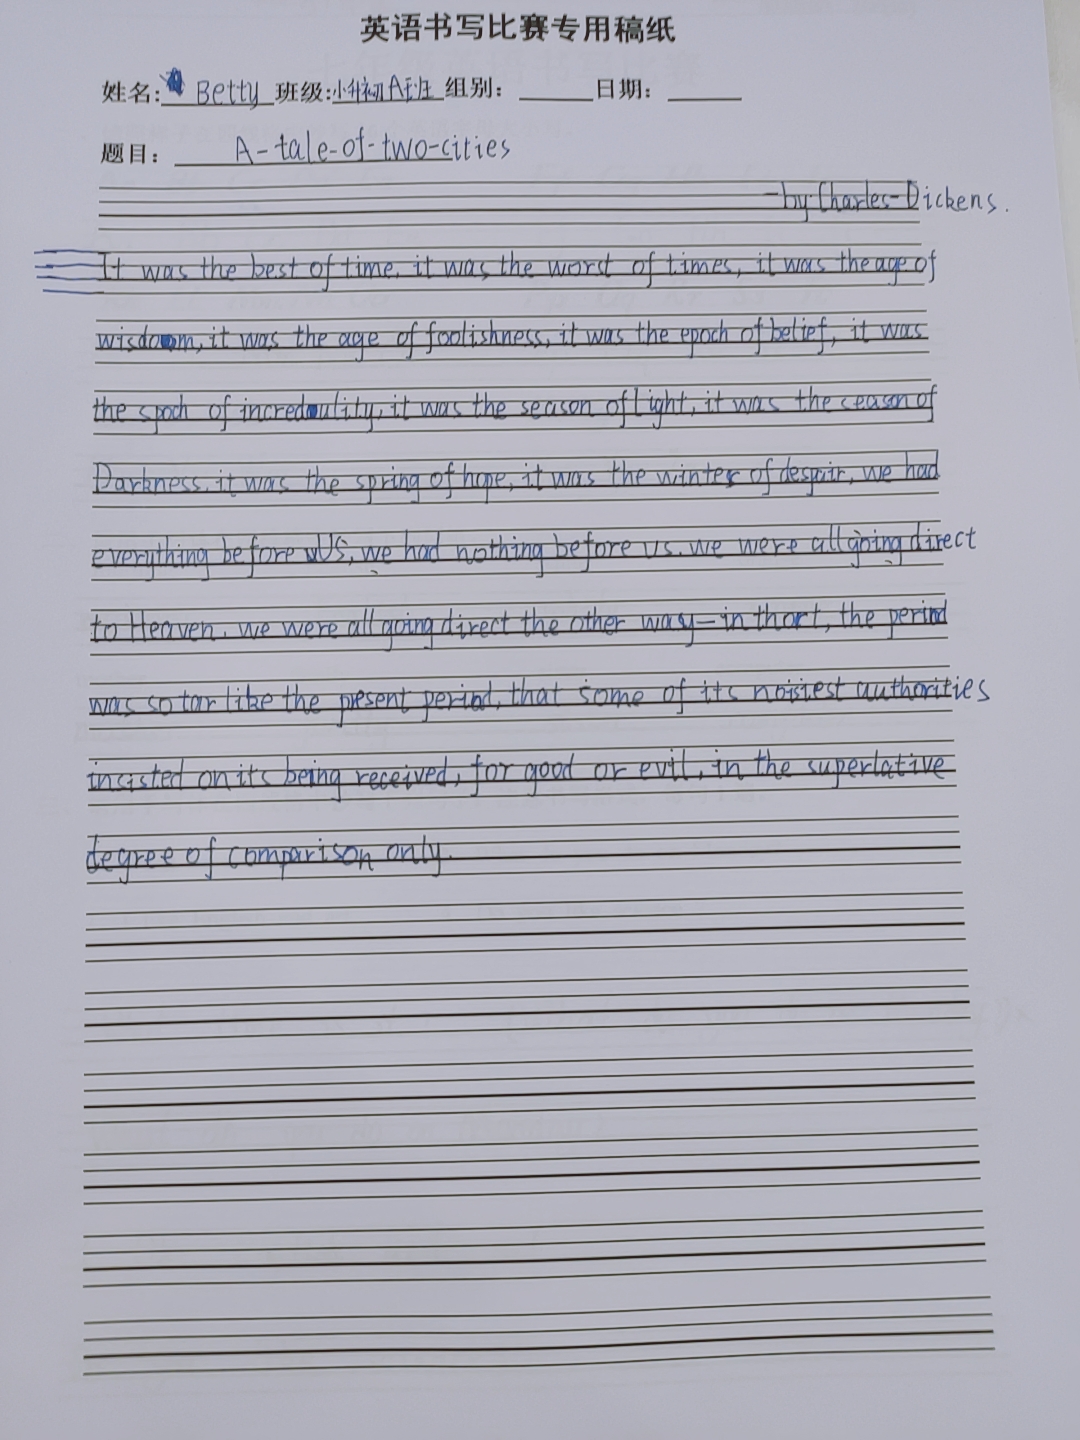 英语书写比赛专用稿纸
姓名: Betty 班级:小升初A班 组别: 日期:
题目: A-tale-of-two-cities
-by-Charles-Dickens.
It was the best of time, it was the worst of times, it was the age of
wisdom, it was the age of foolishness, it was the epoch of belief, it was
the spoch of incredulity, it was the season of light, it was the season of
Darkness, it was the spring of hope, it was the winter of despair, we had
everything before US, we had nothing before us, we were all going direct
to Heaven, we were all going direct the other way—in thort, the period
was so tar like the present period, that some of its noisiest authorities
insisted on its being received, for good or evil, in the superlative
degree of comparison only.